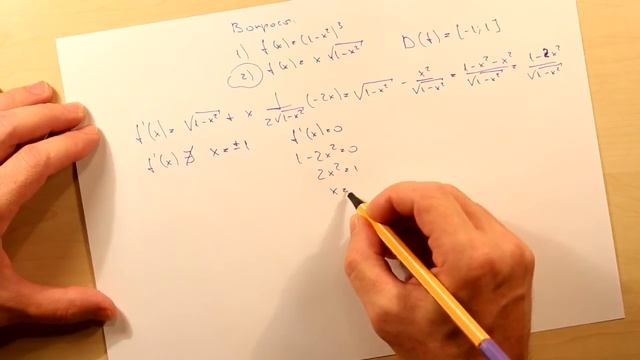 Вопросы:
1) f(x)=(1-x²)³
2) f(x)= x √(1-x²) D(f)=[-1;1]
f'(x)= √(1-x²) + x 1/(2√(1-x²)) (-2x)= √(1-x²) - x²/√(1-x²) = (1-x²-x²)/√(1-x²) = (1-2x²)/√(1-x²)
f'(x) ∄ x=±1
f'(x)=0
1-2x²=0
2x²=1
x=